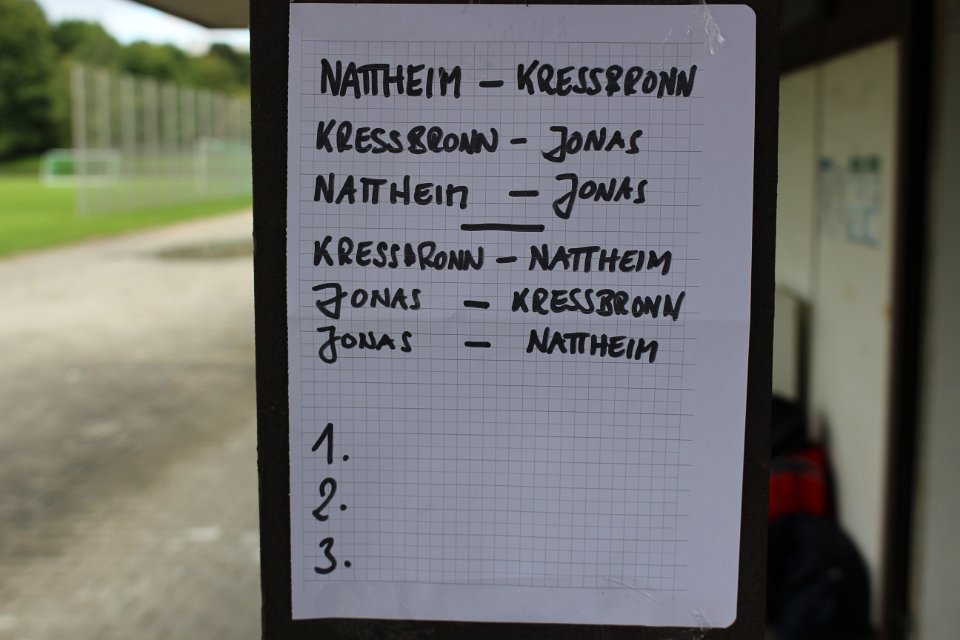 NATTHEIM – KRESSBRONN
KRESSBRONN – JONAS
NATTHEIM – JONAS
KRESSBRONN – NATTHEIM
JONAS – KRESSBRONN
JONAS – NATTHEIM
1.
2.
3.